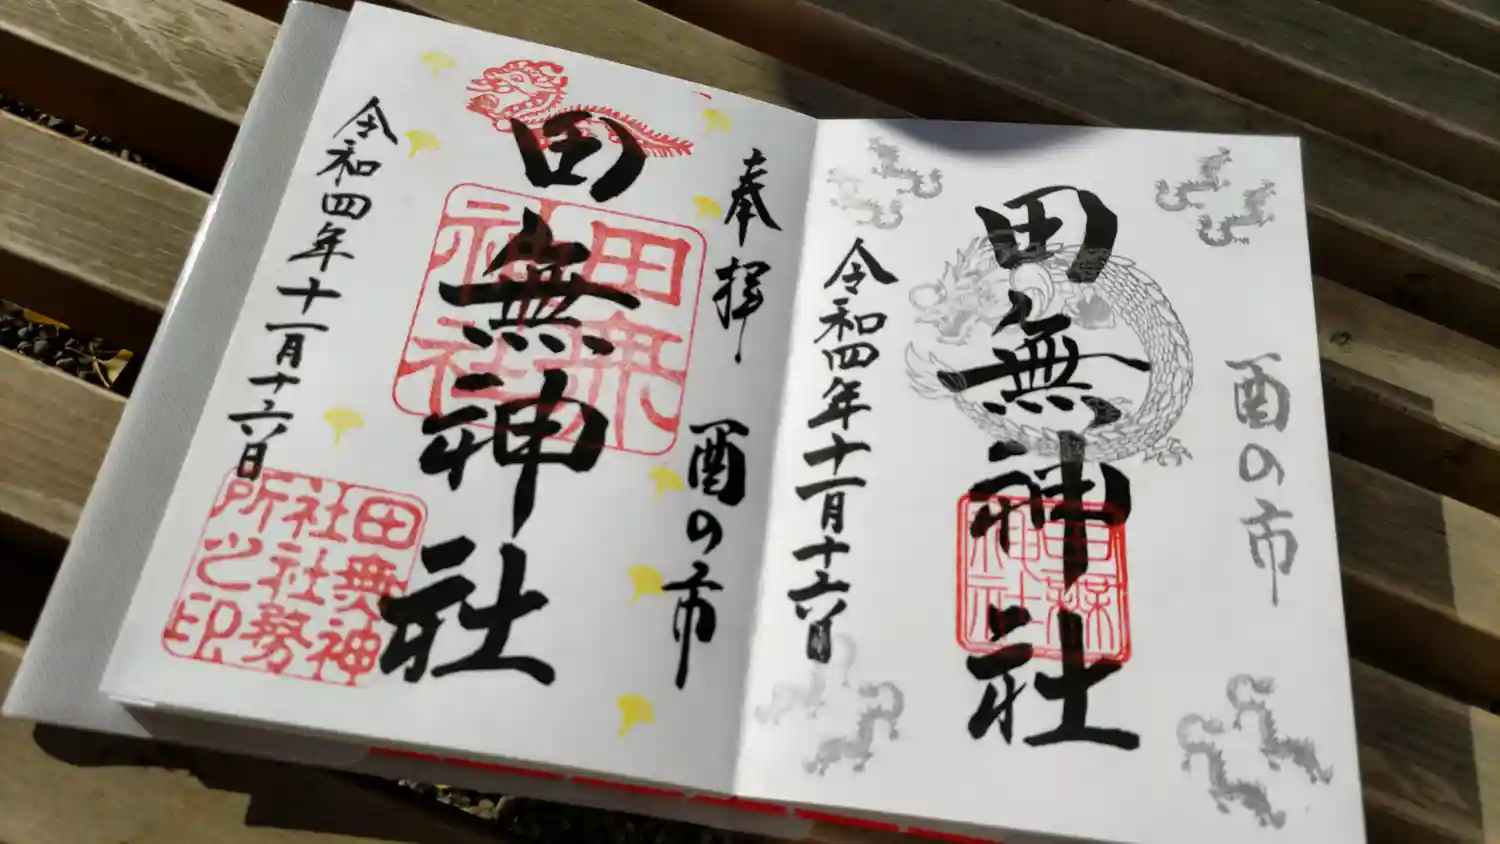 酉の市
田無神社
田無神社
令和四年十一月十六日
奉拝 酉の市
田無神社
田無神社
令和四年十一月十六日
田無神社社務所之印